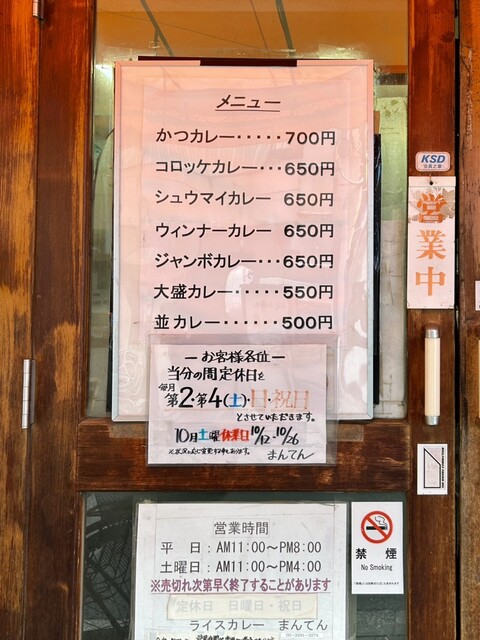 メニュー
かつカレー・・・・・700円
コロッケカレー・・・650円
シュウマイカレー 650円
ウィンナーカレー 650円
ジャンボカレー・・・650円
大盛カレー・・・・・550円
並カレー・・・・・・500円
KSD
営業中
ーお客様各位ー
当分の間定休日を
毎月
第2・第4(土)・日・祝日
とさせていただきます。
10月土曜休業日10/12-10/26
まんてん
営業時間
平 日:AM11:00〜PM8:00
土曜日:AM11:00〜PM4:00
※売切れ次第早く終了することがあります
定休日 日曜日・祝日
ライスカレー まんてん
禁煙
No Smoking